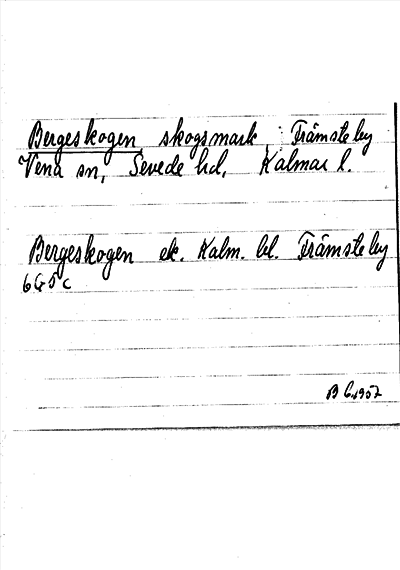 Bergeskogen skogsmark, Främsteby
Vena sn, Sevede hd, Kalmar l.
Bergeskogen ek. Kalm. bl. Främsteby
6G5c
1957